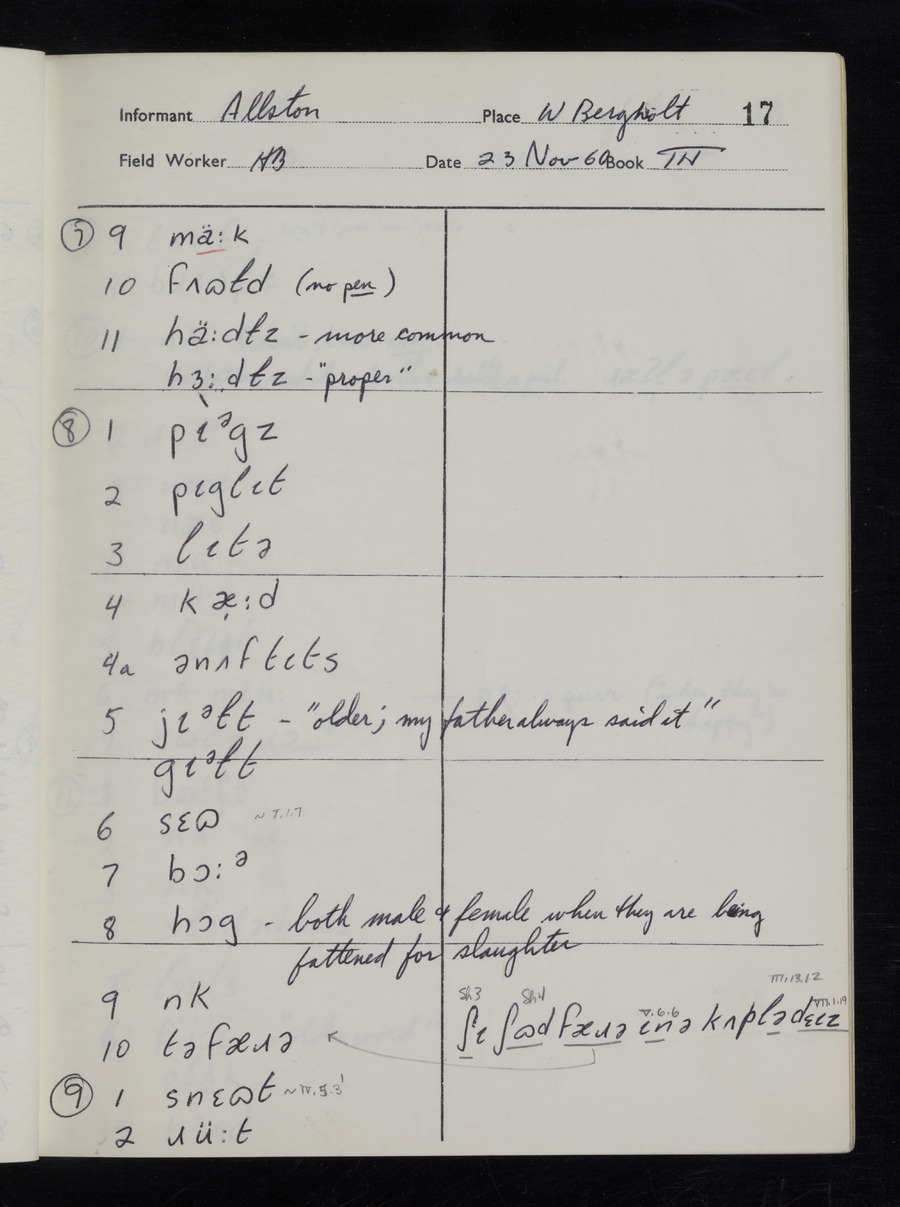 Informant Allston Place W Bergholt 17
Field Worker HB Date 23 Nov 60 Book III
⑦ 9 mä:k
10 fʌɷɫd (no pen)
11 hä:dɫz - more common
hɜ̣:dɫz - "proper"
⑧ 1 pɩᵊgz
2 pɩglɩt
3 lɩtə
4 kæ̣:d
4a ənʌf tɩts
5 jɩᵊɫt - "older; my father always said it"
gɩᵊɫt
6 sɛɷ ~ V.1.7
7 bɔ:ᵊ
8 hɔg - both male & female when they are being
fattened for slaughter
9 nk
Sh3 Sh4 V.6.6 III.13.12 VII.1.19
ʃɩ ʃɷd fæɹə ɩn ə kʌpl̩ə dɛɩz
10 tə fæɹə
⑨ 1 snɛɷt ~ IV.5.3
2 ɹü:t